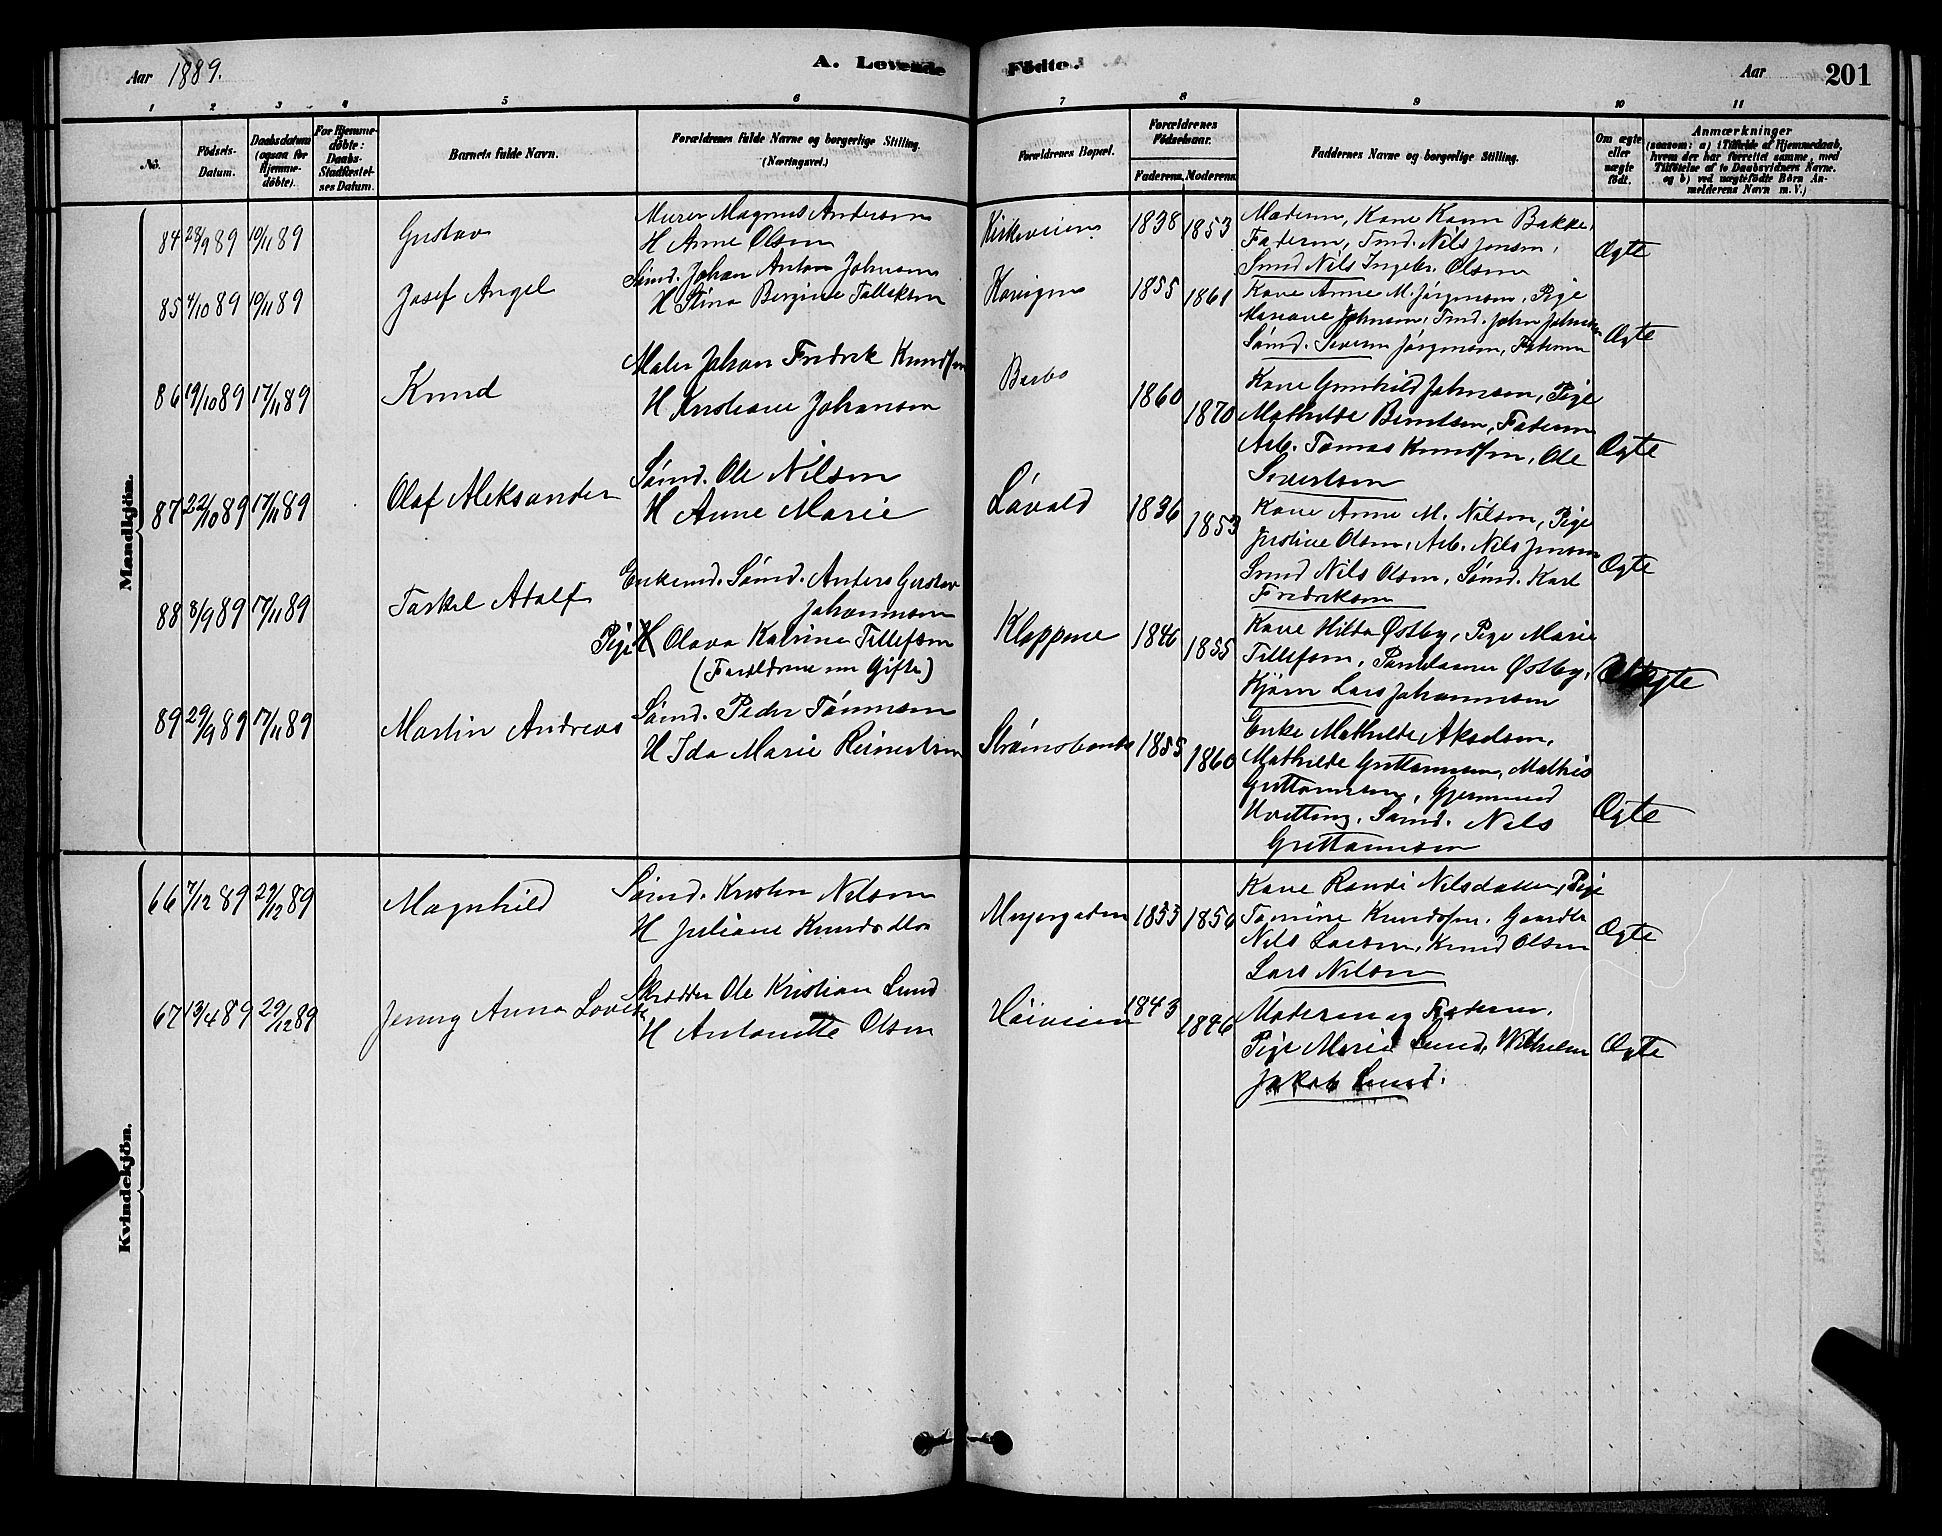 Aar 1889. A. Levende Födte. Aar 201
1 2 3 4 5 6 7 8 9 10 11
No. Födsels-Datum. Daabsdatum (ogsaa for Hjemme-döbte). For Hjemme-döbte: Daabs-Stadfæstel-ses Datum. Barnets fulde Navn. Forældrenes fulde Navne og borgerlige Stilling. (Næringsvei.) Forældrenes Bopæl. Forældrenes Födselsaar. Faderens. Moderens. Faddernes Navne og borgerlige Stilling. Om ægte eller uægte födt. Anmærkninger (saasom: a) i Tilfælde af Hjemmedaab, hvem der har forrettet samme, med Tilföielse af to Daabsvidners Navne. og b) ved uægtefödte Börn An-melderens Navn m. V.)
Mandkjön.
84 28/9 89 10/11 89 Gustav
Murer Magnus Anderson
H Anne Olsen
Kirkeveien 1838 1853
Moderen, Kone Karen Bakke,
Faderen, Tmd. Nils Jensen,
Smed Nils Ingebr. Olsen
Ægte
85 4/10 89 10/11 89 Josef Angel
Sömd. Johan Anton Johnsen
H Stina Bergine Tallaksen
1855 1861
Kone Anne M. Jörgensen, Pige
Mariane Johnsen, Tmd. John Johnsen
Sömd. Severin Jörgensen, Faderen
Ægte
86 19/10 89 17/11 89 Knud
Maler Johan Fredrik Knudsen
H Kristiane Johansen
Barbo 1860 1870
Kone Gunhild Johnsen, Pige
Mathilde Berntsen, Faderen
Arb. Tomas Knudsen, Ole
Sivertsen
Ægte
87 22/10 89 17/11 89 Olaf Aleksander
Sömd. Ole Nilsen
H Anne Marie
Lövold 1836 1853
Kone Anne M. Nilsen, Pige
Justine Olsen, Arb. Nils Jensen
Smed Nils Olsen, Sömd. Karl
Fredriksen
Ægte
88 3/9 89 17/11 89 Tarkel Adolf
Enkemd. Sömd. Anders Gustav
Johannesen
Pige H Olava Katrine Tellefsen
(Forældrene nu Gifte)
Kloppene 1846 1855
Kone Hilda Østby, Pige Marie
Tellefsen, Østby,
Lars Johannesen
Uægte
89 29/9 89 17/11 89 Martin Andreas
Sömd. Peder Tönnesen
H Ida Marie Reinertsen
Strömsbonbo 1855 1860
Enke Mathilde Akselsen,
Mathilde Guttormsen, Mathis
Guttormsen, Gjermund
Sömd. Nils
Guttormsen
Ægte
Kvindekjön.
66 7/12 89 29/12 89 Magnhild
Sömd. Kristen Nilsen
H Juliane Knudsdtr
Meyergaden 1853 1856
Kone Randi Nilsdatter, Pige
Tomine Knudsen, Gaardbr
Nils Larsen, Knud Olsen
Lars Nilsen
Ægte
67 13/4 89 29/12 89 Jenny Anna Lovise
Skrædder Ole Kristian Lund
H Antonette Olsen
Höiveien 1843 1846
Moderen og Faderen,
Pige Marie Lund, Wilhelm
Jakob Lund.
Ægte